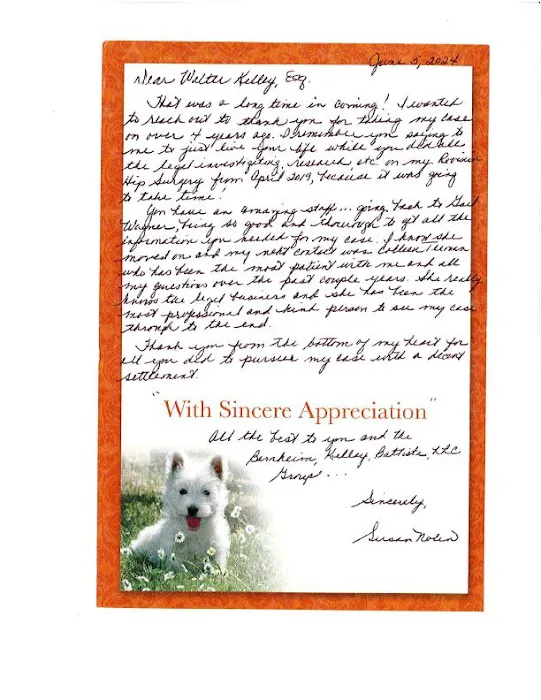 June 5, 2024
Dear Walter Kelley, Esq.
That was a long time in coming! I wanted
to reach out to thank you for taking my case
on over 4 years ago. I remember you saying to
me to just live your life while you did all
the legal investigating, research etc on my Revision
Hip Surgery from April 2019, because it was going
to take time.
You have an amazing staff... going back to Gail
Wagner, being so good and thorough to get all the
information you needed for my case. I know she
moved on and my next contact was Colleen
who has been the most patient with me and all
my questions over the past couple years. She really
knows the legal business and she has been the
most professional and kind person to see my case
through to the end.
Thank you from the bottom of my heart for
all you did to pursue my case with a decent
settlement.
"With Sincere Appreciation"
All the best to you and the
Bernheim, Kelley, Battista, LLC
Group...
Sincerely,
Susan Nolen